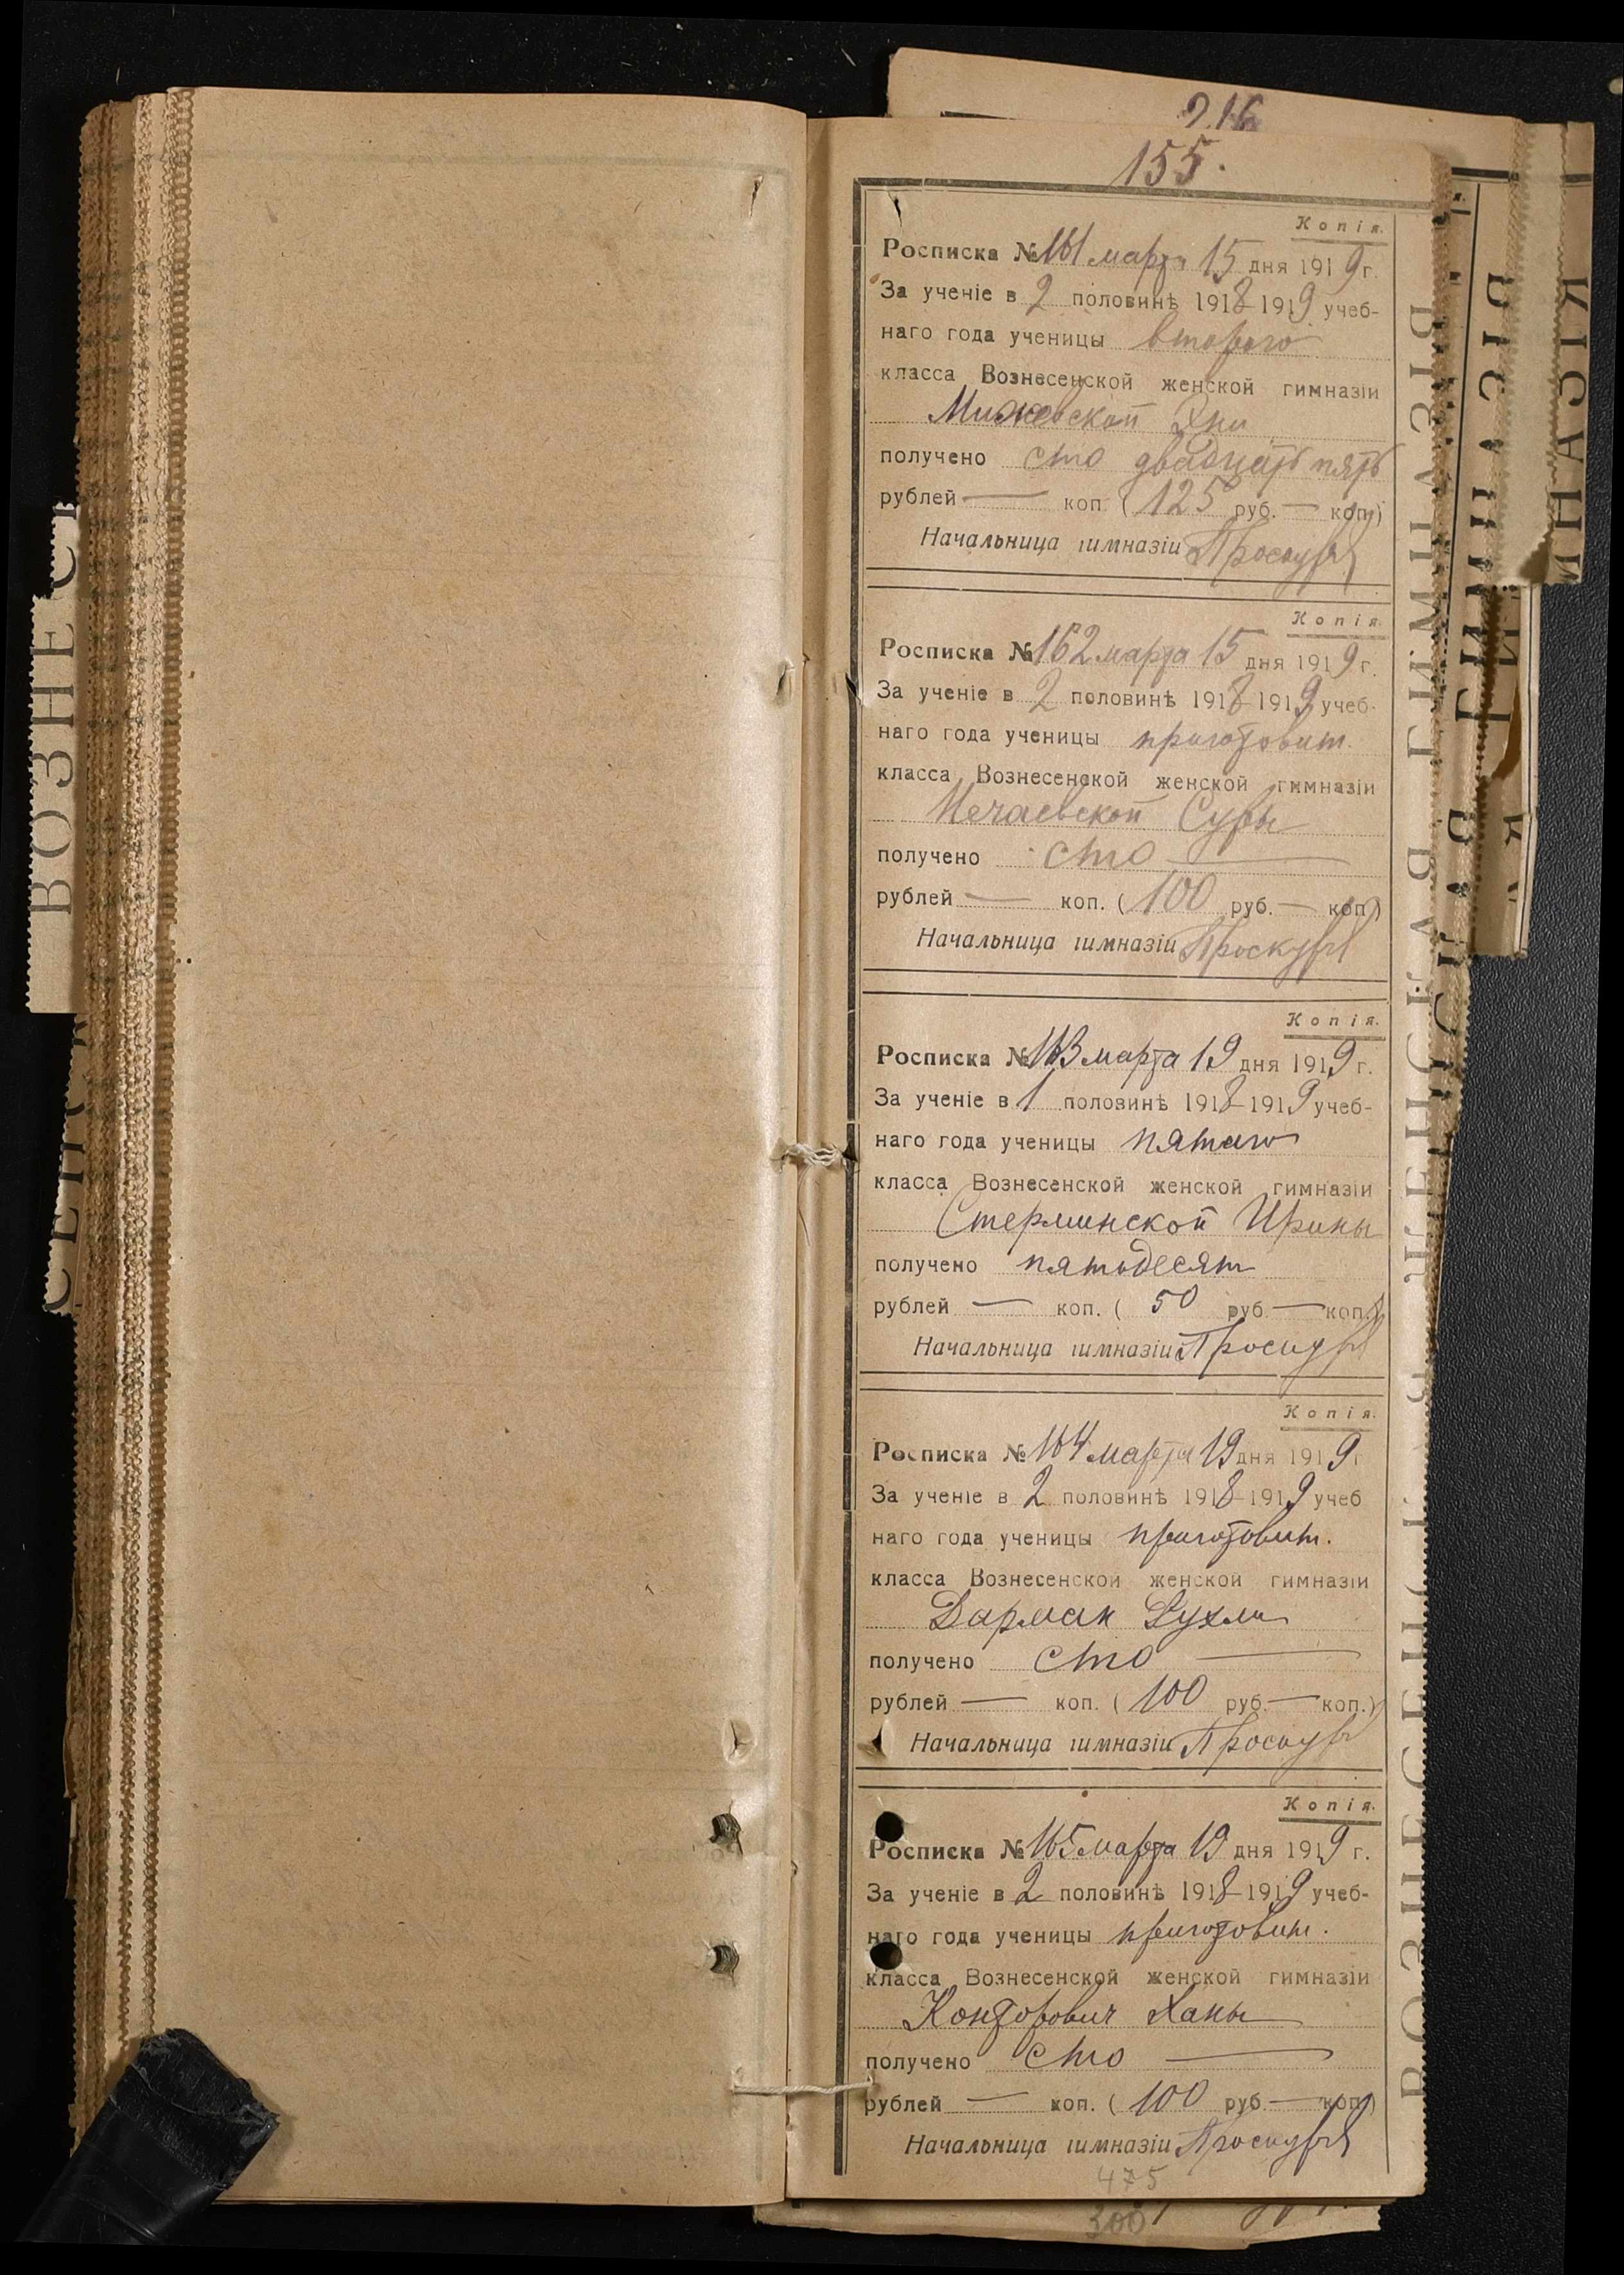 216
155.
Копія.
Росписка № 161 марта 15 дня 1919 г.
За ученіе в 2 половинѣ 1918-1919 учеб-
наго года ученицы второго
класса Вознесенской женской гимназіи
Мижевской
получено сто двадцать пять
рублей — коп. (125 руб. — коп.)
Начальница гимназіи
Копія.
Росписка № 162 марта 15 дня 1919 г.
За ученіе в 2 половинѣ 1918-1919 учеб-
наго года ученицы приготовит.
класса Вознесенской женской гимназіи
Нечаевской Суры
получено сто —
рублей — коп. (100 руб. — коп.)
Начальница гимназіи
Копія.
Росписка № 163 марта 19 дня 1919 г.
За ученіе в 1 половинѣ 1918-1919 учеб-
наго года ученицы пятаго
класса Вознесенской женской гимназіи
Стерминской Ирины
получено пятьдесят
рублей — коп. (50 руб. — коп.)
Начальница гимназіи
Копія.
Росписка № 164 марта 19 дня 1919 г
За ученіе в 2 половинѣ 1918-1919 учеб
наго года ученицы приготовит.
класса Вознесенской женской гимназіи
Дарман Рухли
получено сто —
рублей — коп. (100 руб. — коп.)
Начальница гимназіи
Копія.
Росписка № 165 марта 19 дня 1919 г.
За ученіе в 2 половинѣ 1918-1919 учеб-
наго года ученицы приготовит.
класса Вознесенской женской гимназіи
Конторович Ханы
получено сто —
рублей — коп. (100 руб. — коп.)
Начальница гимназіи
475
300
ВОЗНЕС